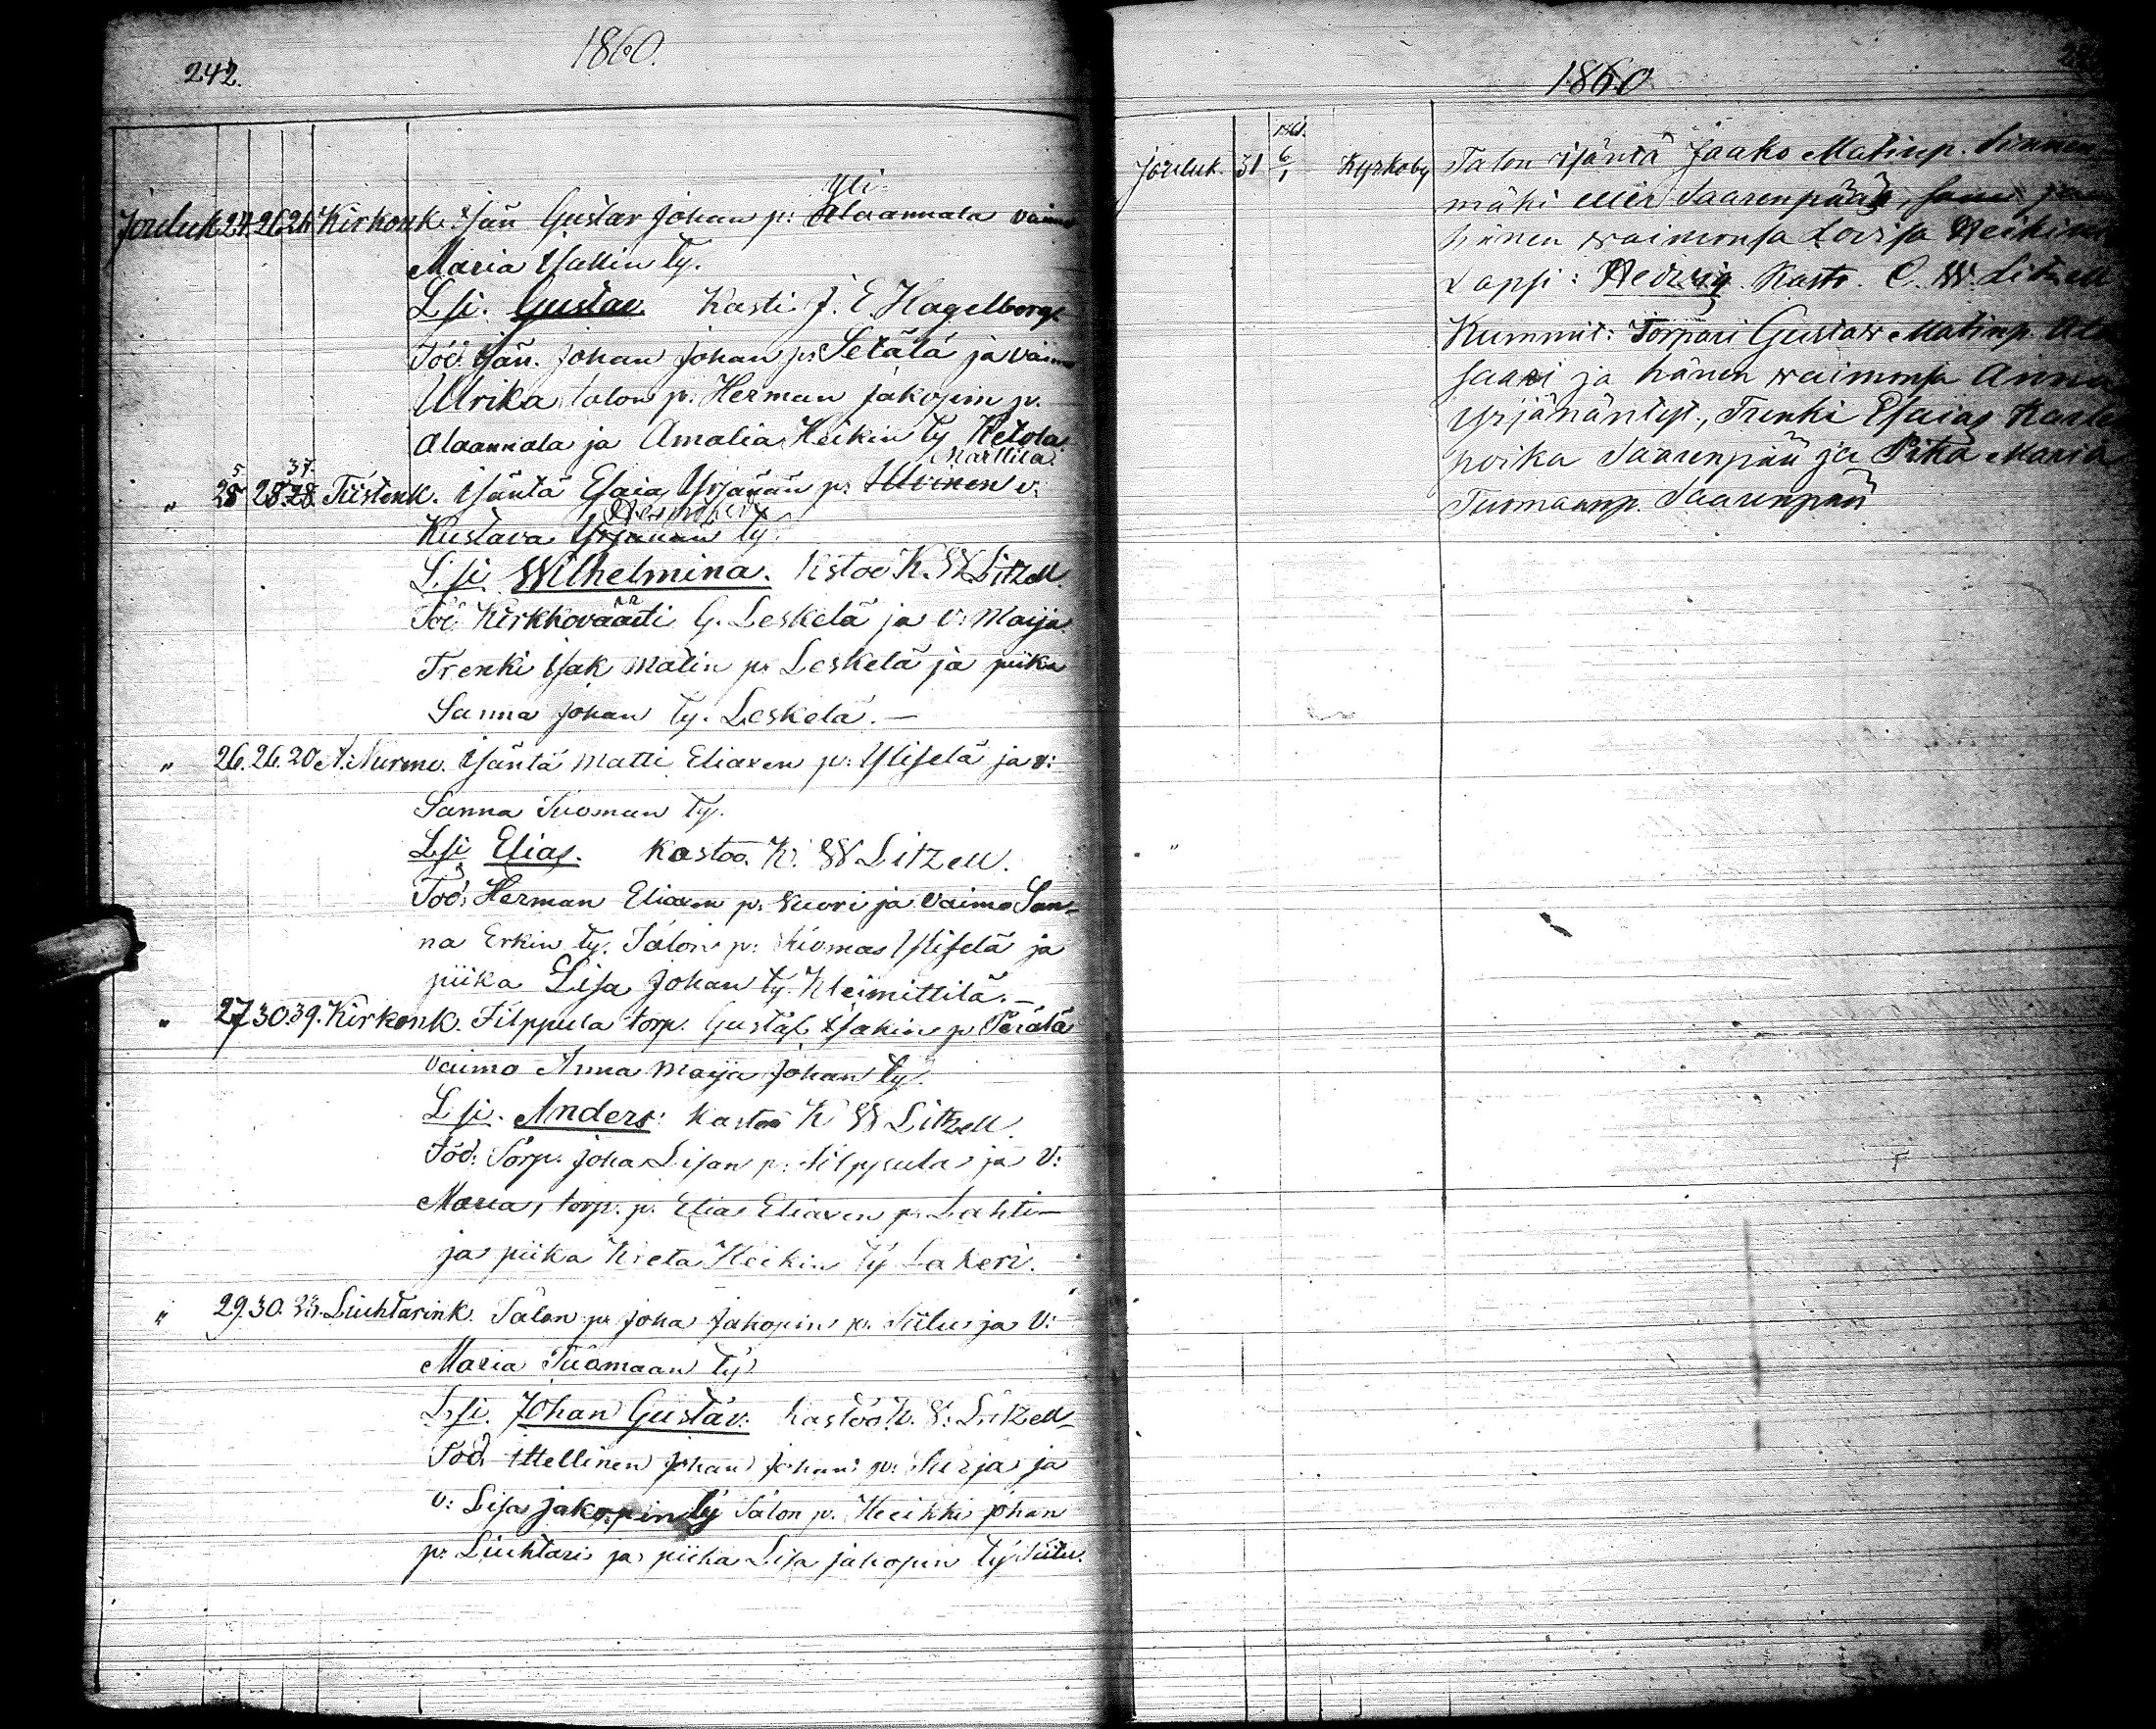 242.
1860.
Yli-
Jouluk 24. 26. 24 Kirkonk. Isän Gustav Johan p: Alaannala vaimo
Maria Isakin ty.
L:si. Gustav. Kasti J. E. Hagelberg.
Tod. Isän. Johan Johan p: Setälä ja vaimo
Ulrika, talon p. Herman Jakopin p.
Alaannala ja Amalia Heikin ty Ketola
Marttila.
37.
" 25 28. 28. Tiistenk. Isäntä Esaia Yrjänän p: v:
Kustava Yrjänän ty.
L:si Wilhelmina. Kstoo K. W. Litzell.
Tod. Kirkkoväärti G. Leskelä ja v: Maija.
Trenki Isak Matin p: Leskelä ja piika
Sanna Johan ty. Leskelä. —
" 26. 26. 20 A. Nurmo. Isäntä Matti Eliaxen p: Yliselä ja v:
Sanna Tuoman ty.
L:si Elias. Kastoo. K. W Litzell.
Tod. Herman Eliaxen p: Wuori ja vaimo San-
na Erkin ty. Talon p: Tuomas Yliselä ja
piika Lisa Johan ty. Kleimittilä. —
" 27 30. 39. Kirkonk. Filppula torp. Gustaf Isakin p: Perälä
vaimo Anna Maija Johan ty.
L:si. Anders: Kastoo K W Litzell.
Tod: Torp. Joha Lisan p: Filppula ja v:
Maria, torp. p. Elias Eliaxen p: Lahti
ja piika Kreta Heikin ty Lakeri.
" 29. 30. 33. Luhtarink. Talon p: Joha Jakopin p. Tiilu ja v:
Maria Tuomaan ty.
L:si. Johan Gustav. Kastoo K. W. Litzell
Tod. Itellinen Johan Johan p: ja
v: Lisa Jakopin ty Talon p. Heikki Johan
p: Luhtari ja piika Lisa Jakopin ty Tiilu.
1860
1861.
Jouluk. 31 6/1 Kyrkoby Talon isäntä Jaako Matinp.
mäki eller Saarenpää,
hänen waimonsa Lovisa
Lapsi: Hedvig. Kasto. C. W. Litzell
Kummit: Torpari Gustaw Matinp. Ala
saari ja hänen waimonsa Anna
Yrjänäntyt., Trenki Esaias Kaarle
poika Saarenpää ja Piika Maria
Tuomaanp. Saarenpää